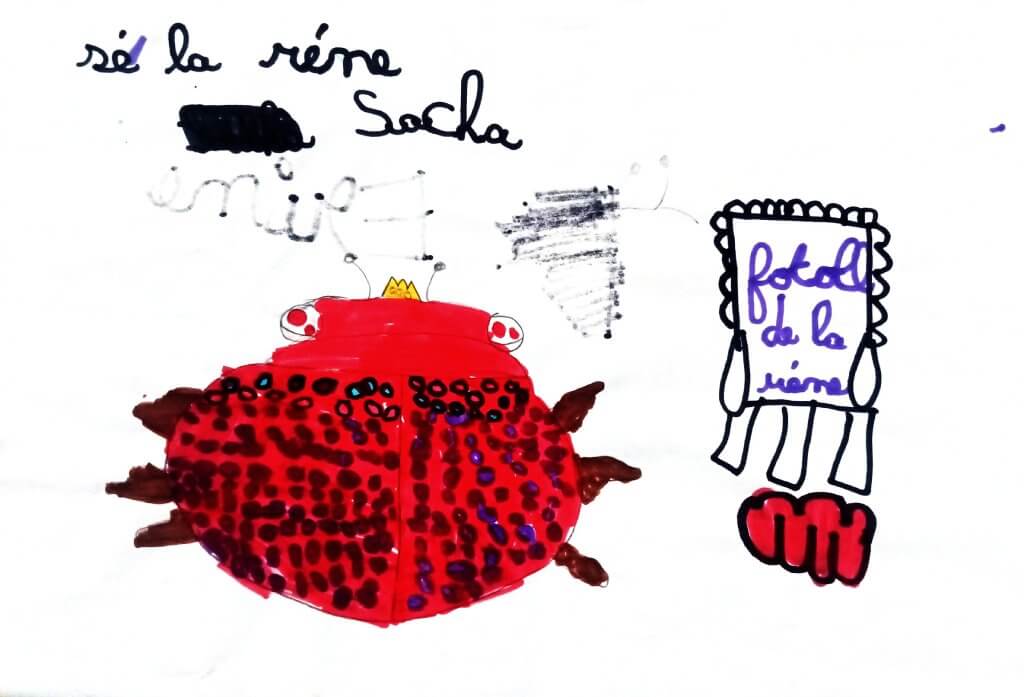 sé la réne
Sacha
fotoll
de la
réne